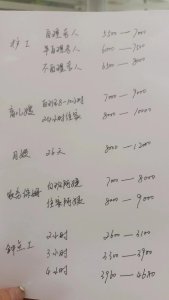 护工 自理老人 5500—7000
半自理老人 6000—7500
不自理老人 6500—8000
育儿嫂 白班8-10小时 7000—9000
24小时住家 8000—10000
月嫂 26天 8000—12000
收务保姆 白班 7000—8000
住家 8000—9000
钟点工 2小时 2600—3100
3小时 3300—3900
4小时 3960—4680